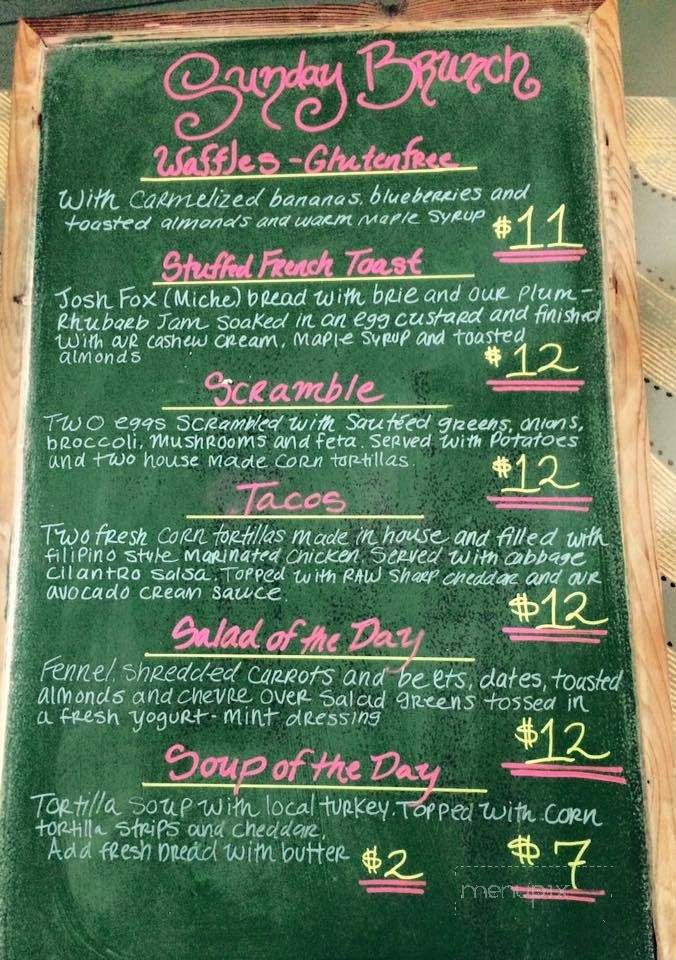 Sunday Brunch
Waffles - Glutenfree
With carmelized bananas, blueberries and
toasted almonds and warm maple syrup
$11
Stuffed French Toast
Josh Fox (Miche) bread with brie and our plum-
Rhubarb Jam soaked in an egg custard and finished
with our cashew cream, maple syrup and toasted
almonds
$12
Scramble
Two eggs scrambled with sautéed greens, onions,
broccoli, mushrooms and feta. Served with potatoes
and two house made corn tortillas.
$12
Tacos
Two fresh corn tortillas made in house and filled with
filipino style marinated chicken. Served with cabbage
cilantro salsa. Topped with RAW sharp cheddar and our
avocado cream sauce.
$12
Salad of the Day
Fennel, shredded carrots and beets, dates, toasted
almonds and chevre over salad greens tossed in
a fresh yogurt-mint dressing
$12
Soup of the Day
Tortilla soup with local turkey. Topped with corn
tortilla strips and cheddar.
Add fresh bread with butter $2
$7
menupix